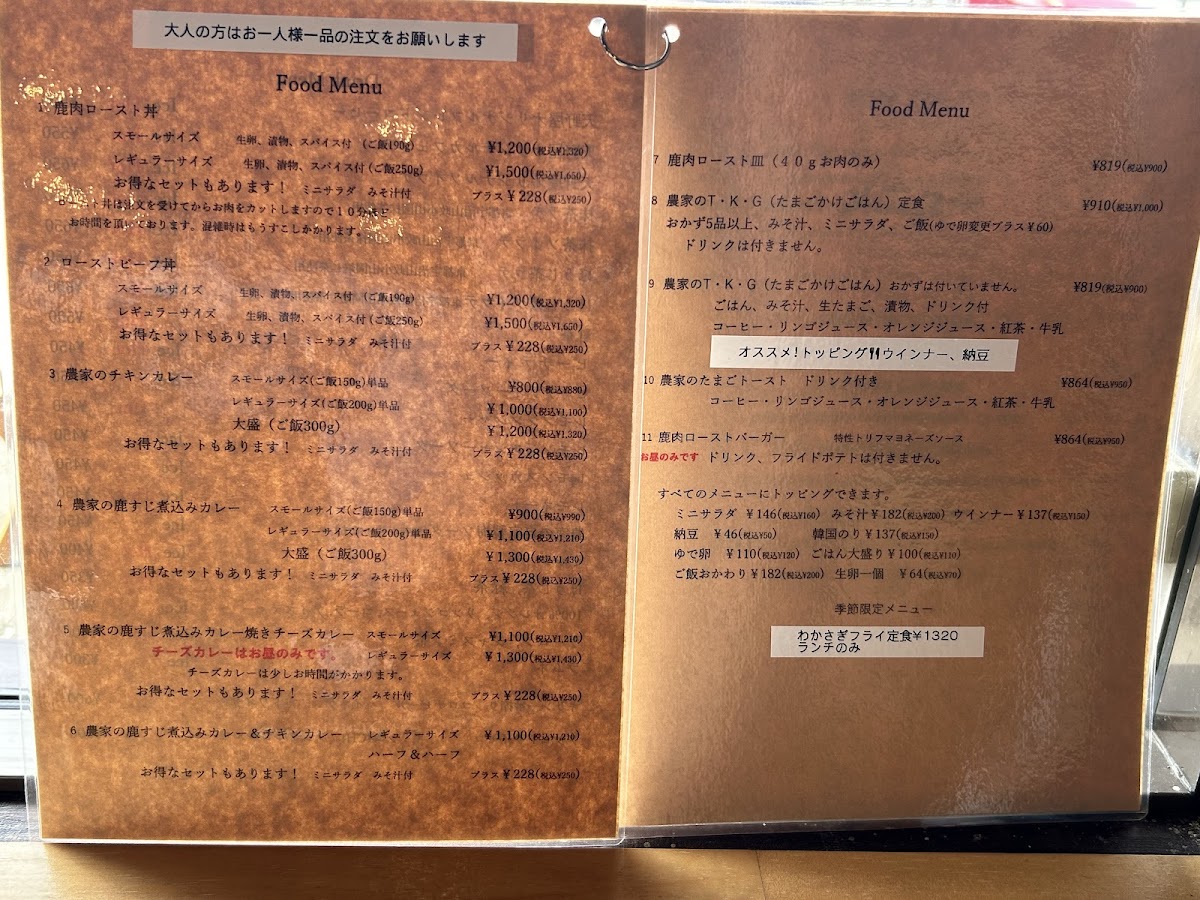 大人の方はお一人様一品の注文をお願いします
Food Menu
1 鹿肉ロースト丼
スモールサイズ 生卵、漬物、スパイス付 (ご飯190g) ¥1,200(税込¥1,320)
レギュラーサイズ 生卵、漬物、スパイス付(ご飯250g) ¥1,500(税込¥1,650)
お得なセットもあります! ミニサラダ みそ汁付 プラス¥228(税込¥250)
ロースト丼は注文を受けてからお肉をカットしますので10分ほど
お時間を頂いております。混雑時はもうすこしかかります。
2 ローストビーフ丼
スモールサイズ 生卵、漬物、スパイス付 (ご飯190g) ¥1,200(税込¥1,320)
レギュラーサイズ 生卵、漬物、スパイス付(ご飯250g) ¥1,500(税込¥1,650)
お得なセットもあります! ミニサラダ みそ汁付 プラス¥228(税込¥250)
3 農家のチキンカレー スモールサイズ(ご飯150g)単品 ¥800(税込¥880)
レギュラーサイズ(ご飯200g)単品 ¥1,000(税込¥1,100)
大盛(ご飯300g) ¥1,200(税込¥1,320)
お得なセットもあります! ミニサラダ みそ汁付 プラス¥228(税込¥250)
4 農家の鹿すじ煮込みカレー スモールサイズ(ご飯150g)単品 ¥900(税込¥990)
レギュラーサイズ(ご飯200g)単品 ¥1,100(税込¥1,210)
大盛(ご飯300g) ¥1,300(税込¥1,430)
お得なセットもあります! ミニサラダ みそ汁付 プラス¥228(税込¥250)
5 農家の鹿すじ煮込みカレー焼きチーズカレー スモールサイズ ¥1,100(税込¥1,210)
チーズカレーはお昼のみです。 レギュラーサイズ ¥1,300(税込¥1,430)
チーズカレーは少しお時間がかかります。
お得なセットもあります! ミニサラダ みそ汁付 プラス¥228(税込¥250)
6 農家の鹿すじ煮込みカレー&チキンカレー レギュラーサイズ ¥1,100(税込¥1,210)
ハーフ&ハーフ
お得なセットもあります! ミニサラダ みそ汁付 プラス¥228(税込¥250)
Food Menu
7 鹿肉ロースト皿(40gお肉のみ) ¥819(税込¥900)
8 農家のT・K・G(たまごかけごはん)定食 ¥910(税込¥1,000)
おかず5品以上、みそ汁、ミニサラダ、ご飯(ゆで卵変更プラス¥60)
ドリンクは付きません。
9 農家のT・K・G(たまごかけごはん)おかずは付いていません。 ¥819(税込¥900)
ごはん、みそ汁、生たまご、漬物、ドリンク付
コーヒー・リンゴジュース・オレンジジュース・紅茶・牛乳
オススメ!トッピング🍴ウインナー、納豆
10 農家のたまごトースト ドリンク付き ¥864(税込¥950)
コーヒー・リンゴジュース・オレンジジュース・紅茶・牛乳
11 鹿肉ローストバーガー 特性トリフマヨネーズソース ¥864(税込¥950)
お昼のみです ドリンク、フライドポテトは付きません。
すべてのメニューにトッピングできます。
ミニサラダ ¥146(税込¥160) みそ汁¥182(税込¥200) ウインナー¥137(税込¥150)
納豆 ¥46(税込¥50) 韓国のり¥137(税込¥150)
ゆで卵 ¥110(税込¥120) ごはん大盛り¥100(税込¥110)
ご飯おかわり¥182(税込¥200) 生卵一個 ¥64(税込¥70)
季節限定メニュー
わかさぎフライ定食¥1320
ランチのみ